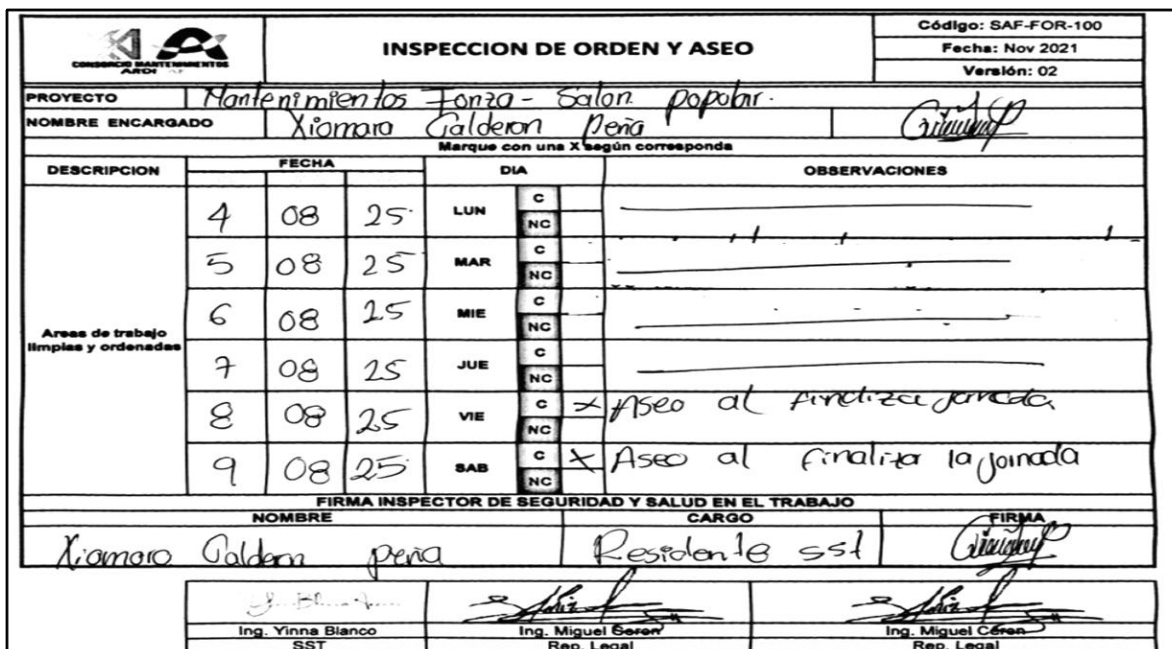 CONSORCIO MANTENIMIENTOS
ARDI
INSPECCION DE ORDEN Y ASEO
Código: SAF-FOR-100
Fecha: Nov 2021
Versión: 02
PROYECTO Mantenimientos Fonza - Salon popolar.
NOMBRE ENCARGADO Xiomara Calderon Peña
Marque con una X según corresponda
DESCRIPCION FECHA DIA OBSERVACIONES
Areas de trabajo
limpias y ordenadas
4 08 25 LUN C NC
5 08 25 MAR C NC
6 08 25 MIE C NC
7 08 25 JUE C NC
8 08 25 VIE C X NC Aseo al finaliza jornada
9 08 25 SAB C X NC Aseo al finaliza la jornada
FIRMA INSPECTOR DE SEGURIDAD Y SALUD EN EL TRABAJO
NOMBRE CARGO FIRMA
Xiomara Calderon peña Residente sst
Ing. Yinna Blanco Ing. Miguel Ceron Ing. Miguel Céron
SST Rep. Legal Rep. Legal